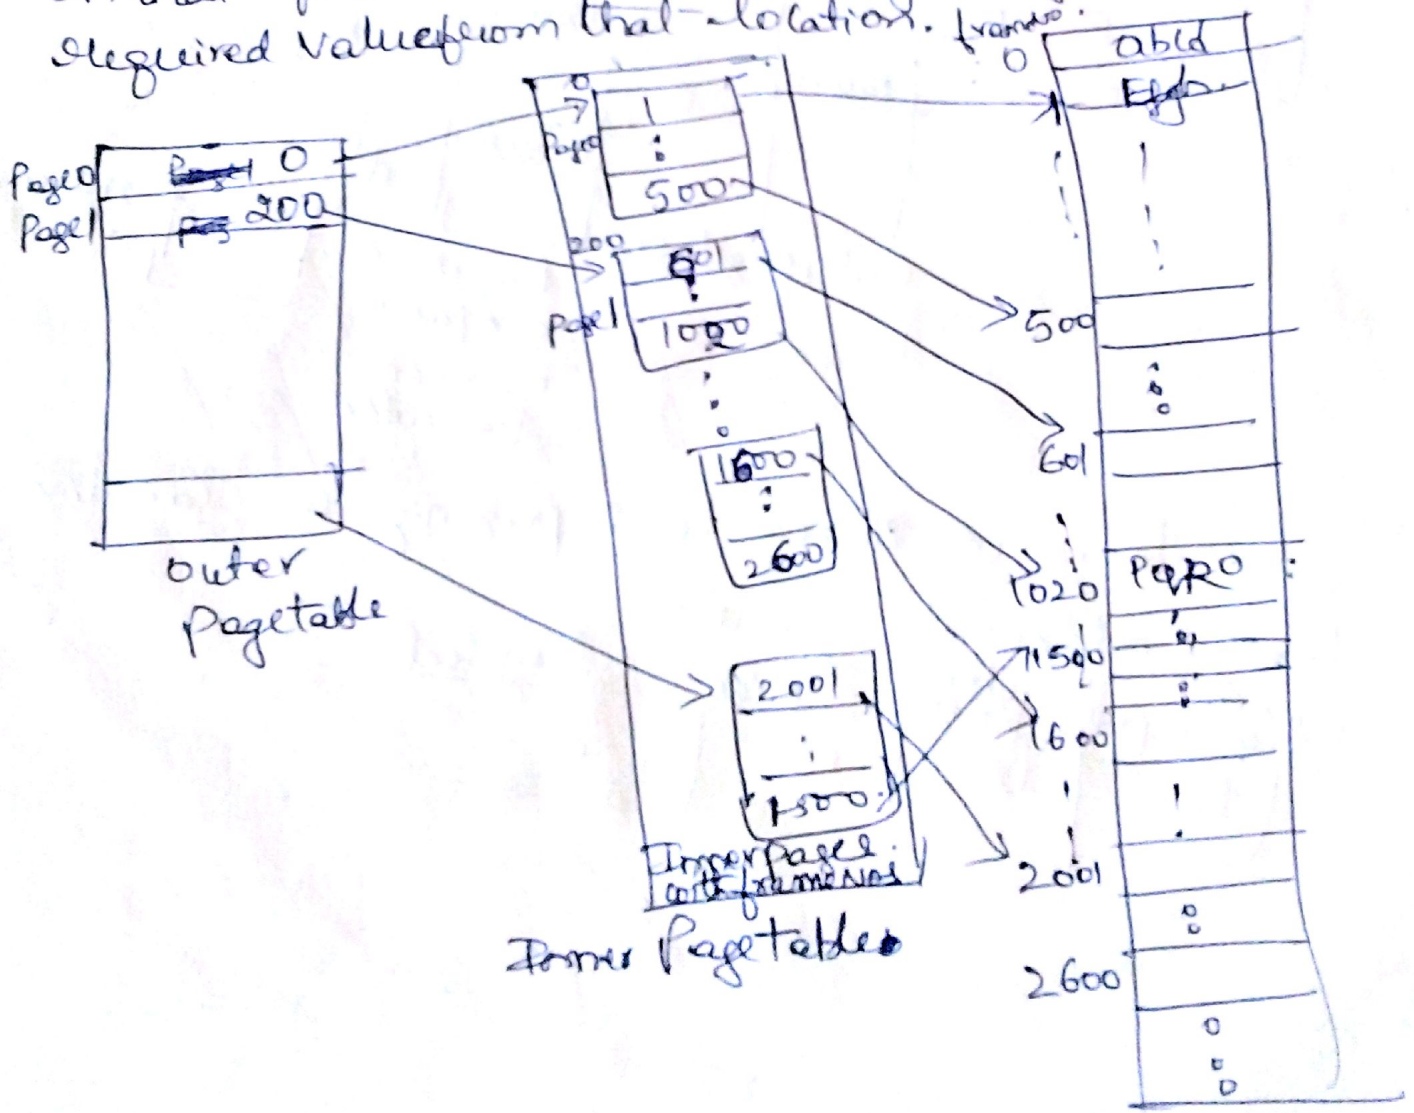 required value from that location. frame no.
0 abcd
Efgh
Page0 0
Page1 200
outer
Pagetable
0
1
Page0
500
200
601
Page1
1020
1600
2600
2001
1500
Inner pages
with frame Nos
Inner Page table
500
601
1020 PQRO
1500
1600
2001
2600